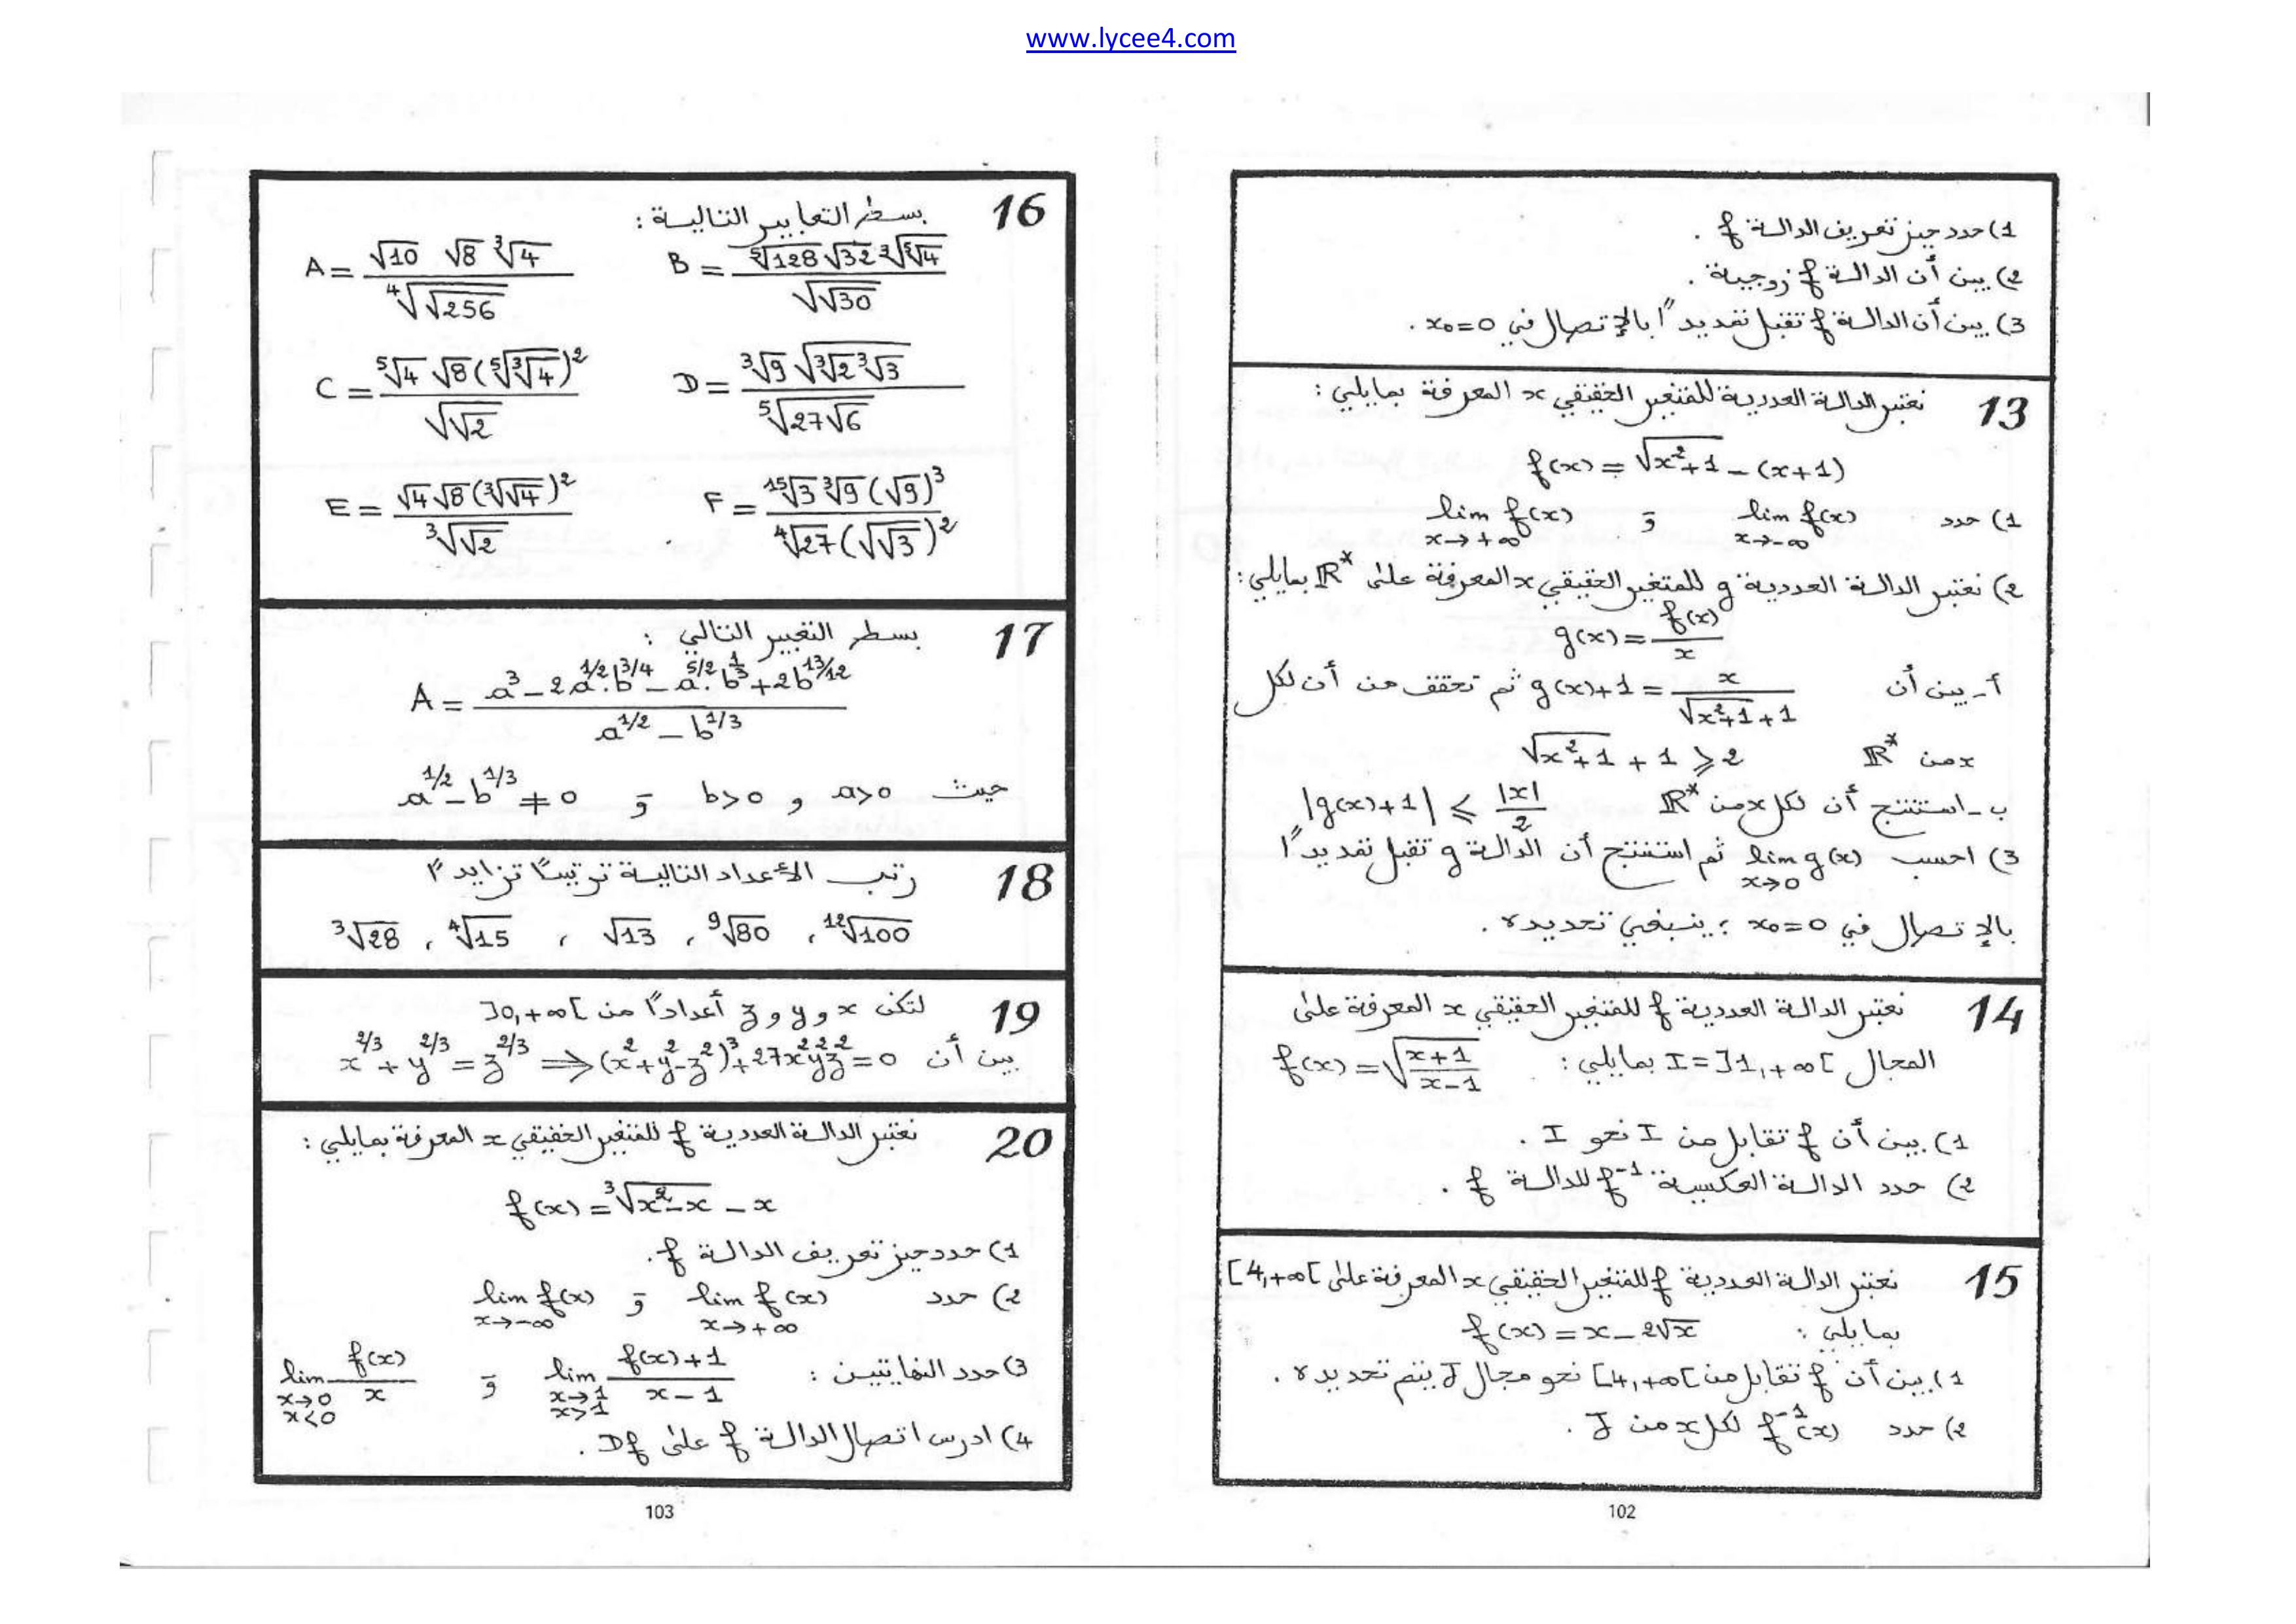 www.lycee4.com
1) حدد حيز تعريف الدالة f .
2) بين أن الدالة f زوجية .
3) بين أن الدالة f تقبل تمديداً بالإتصال في x₀=0 .
13 نعتبر الدالة العددية للمتغير الحقيقي x المعرفة بمايلي :
f(x) = √(x²+1) - (x+1)
1) حدد lim f(x) x→-∞ و lim f(x) x→+∞
2) نعتبر الدالة العددية g للمتغير الحقيقي x المعرفة على ℝ* بمايلي :
g(x) = f(x)/x
أ - بين أن g(x)+1 = x/(√(x²+1)+1) ثم تحقق من أن لكل
x من ℝ* √(x²+1) + 1 ⩾ 2
ب - استنتج أن لكل x من ℝ* |g(x)+1| ⩽ |x|/2
3) احسب lim g(x) x→0 ثم استنتج أن الدالة g تقبل تمديداً
بالإتصال في x₀=0 ; ينبغي تحديده .
14 نعتبر الدالة العددية f للمتغير الحقيقي x المعرفة على
المجال I = ]1,+∞[ بمايلي : f(x) = √((x+1)/(x-1))
1) بين أن f تقابل من I نحو I .
2) حدد الدالة العكسية f⁻¹ للدالة f .
15 نعتبر الدالة العددية f للمتغير الحقيقي x المعرفة على [4,+∞[
بمايلي : f(x) = x - 2√x
1) بين أن f تقابل من [4,+∞[ نحو مجال J يتم تحديده .
2) حدد f⁻¹(x) لكل x من J .
102
16 بسط التعابير التالية :
A = (√10 √8 ³√4)/(⁴√(√256)) B = (⁵√128 √32 ³√(⁵√4))/(√(√30))
C = (⁵√4 √8 (⁵√(³√4))²)/(√(√2)) D = (³√9 √(³√2 ³√3))/(⁵√(27√6))
E = (√4 √8 (³√(√4))²)/(³√(√2)) F = (¹⁵√3 ³√9 (√9)³)/(⁴√27 (√(√3))²)
17 بسط التعبير التالي :
A = (a³ - 2a^(1/2).b^(3/4) - a^(5/2).b^(1/3) + 2b^(13/12))/(a^(1/2) - b^(1/3))
حيث a>0 و b>0 و a^(1/2) - b^(1/3) ≠ 0
18 رتب الأعداد التالية ترتيباً تزايدياً
³√28 , ⁴√15 , √13 , ⁹√80 , ¹²√100
19 لتكن x و y و z أعداداً من ]0,+∞[
بين أن x^(2/3) + y^(2/3) = z^(2/3) ⟹ (x²+y²-z²)³+27x²y²z²=0
20 نعتبر الدالة العددية f للمتغير الحقيقي x المعرفة بمايلي :
f(x) = ³√(x²-x) - x
1) حدد حيز تعريف الدالة f .
2) حدد lim f(x) x→+∞ و lim f(x) x→-∞
3) حدد النهايتين : lim (f(x)+1)/(x-1) x→1 x>1 و lim f(x)/x x→0 x<0
4) ادرس اتصال الدالة f على Df .
103